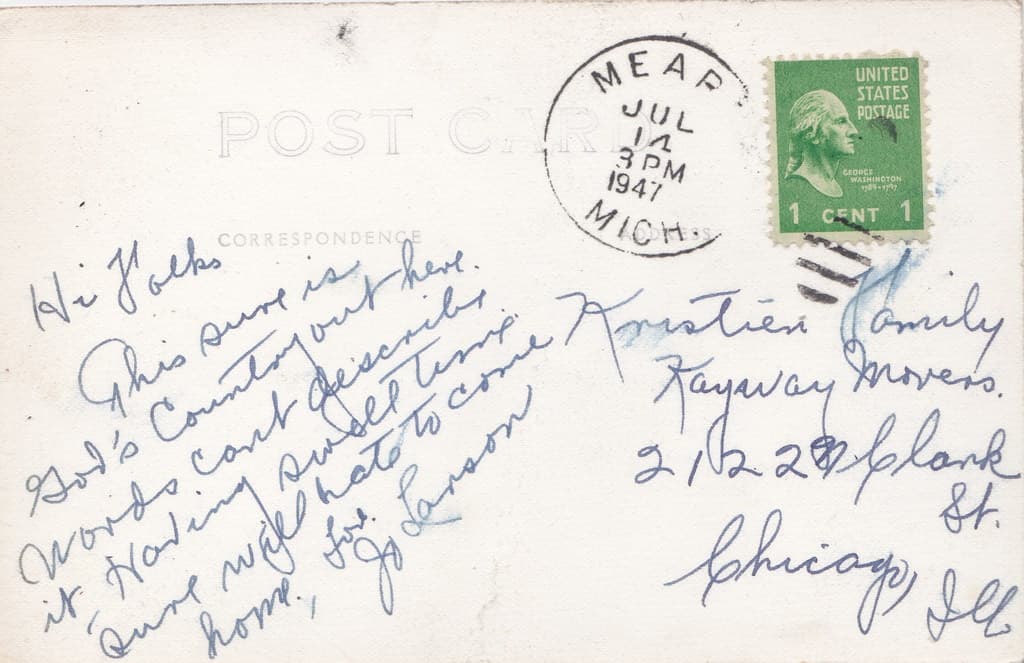 POST CARD
CORRESPONDENCE
ADDRESS
MEARS
JUL
14
3 PM
1947
MICH
UNITED
STATES
POSTAGE
GEORGE
WASHINGTON
1789-1797
1 CENT 1
Hi Folks
This sure is
God's Country out here.
Words cant describe
it. Having swell time.
Sure will hate to come
home.,
Jo Larson
Kristien Family
Kayway Movers.
2122 N Clark
St.
Chicago, Ill.